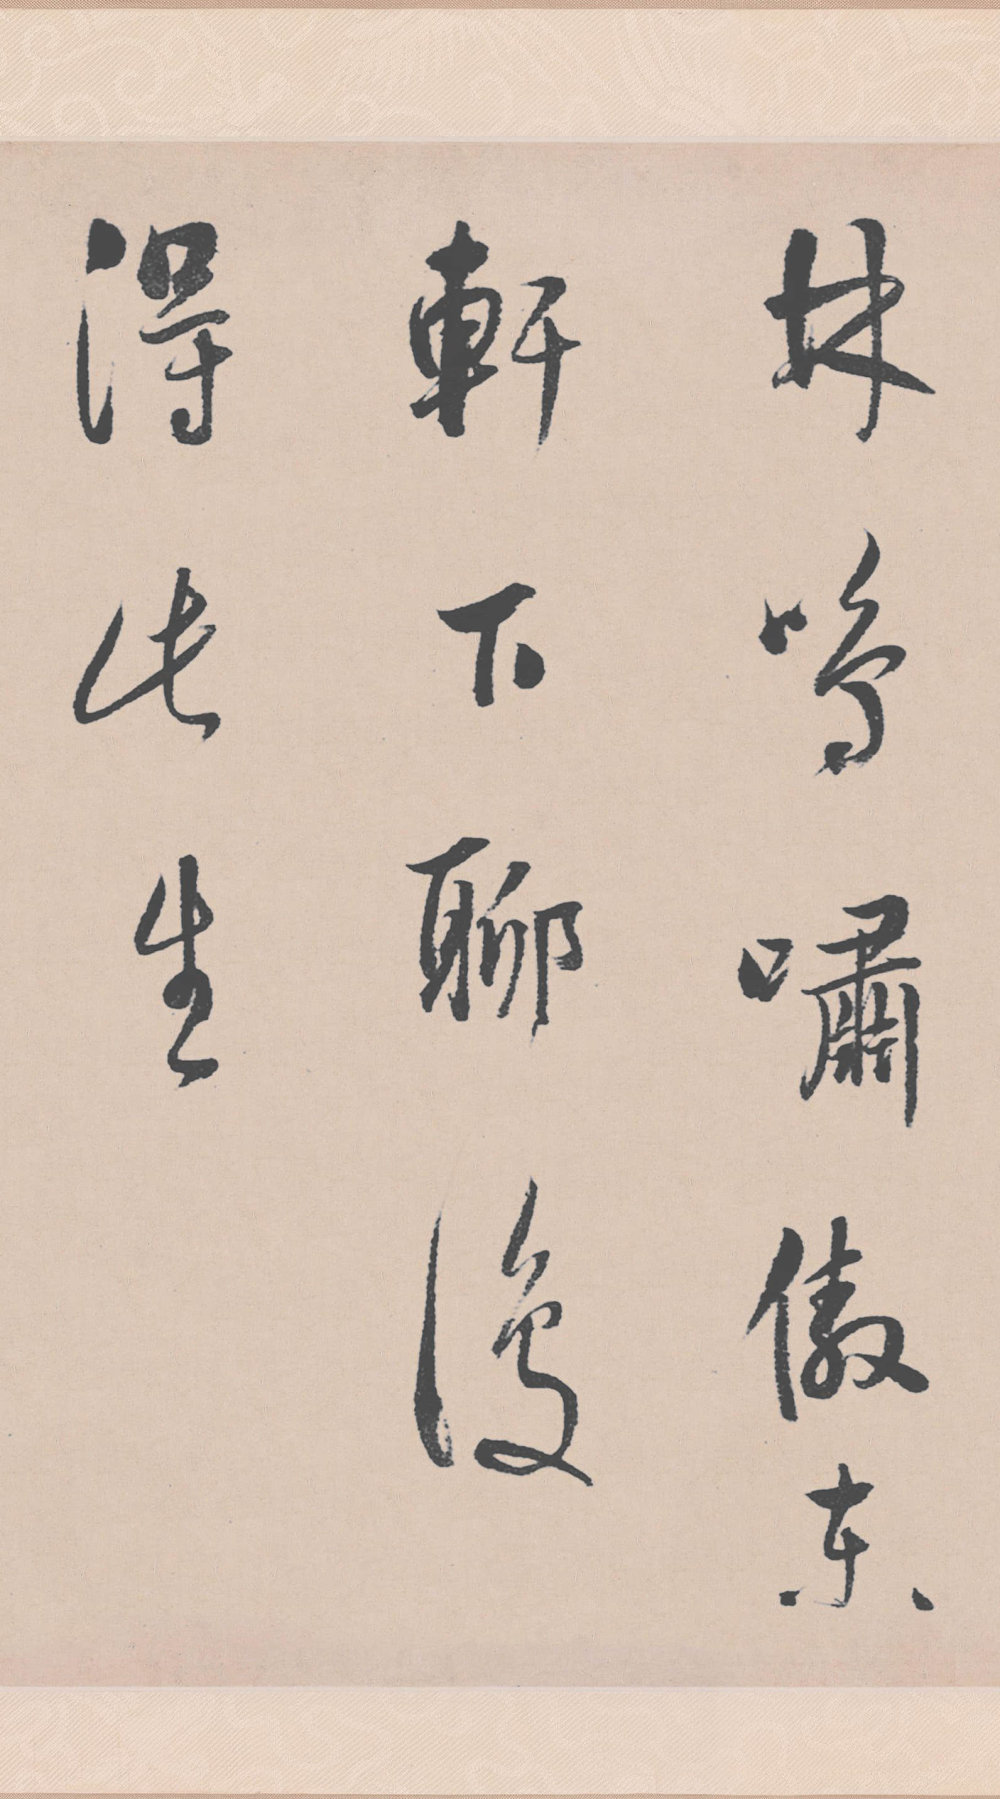 林鳴嘯傲東
軒下聊復
得此生